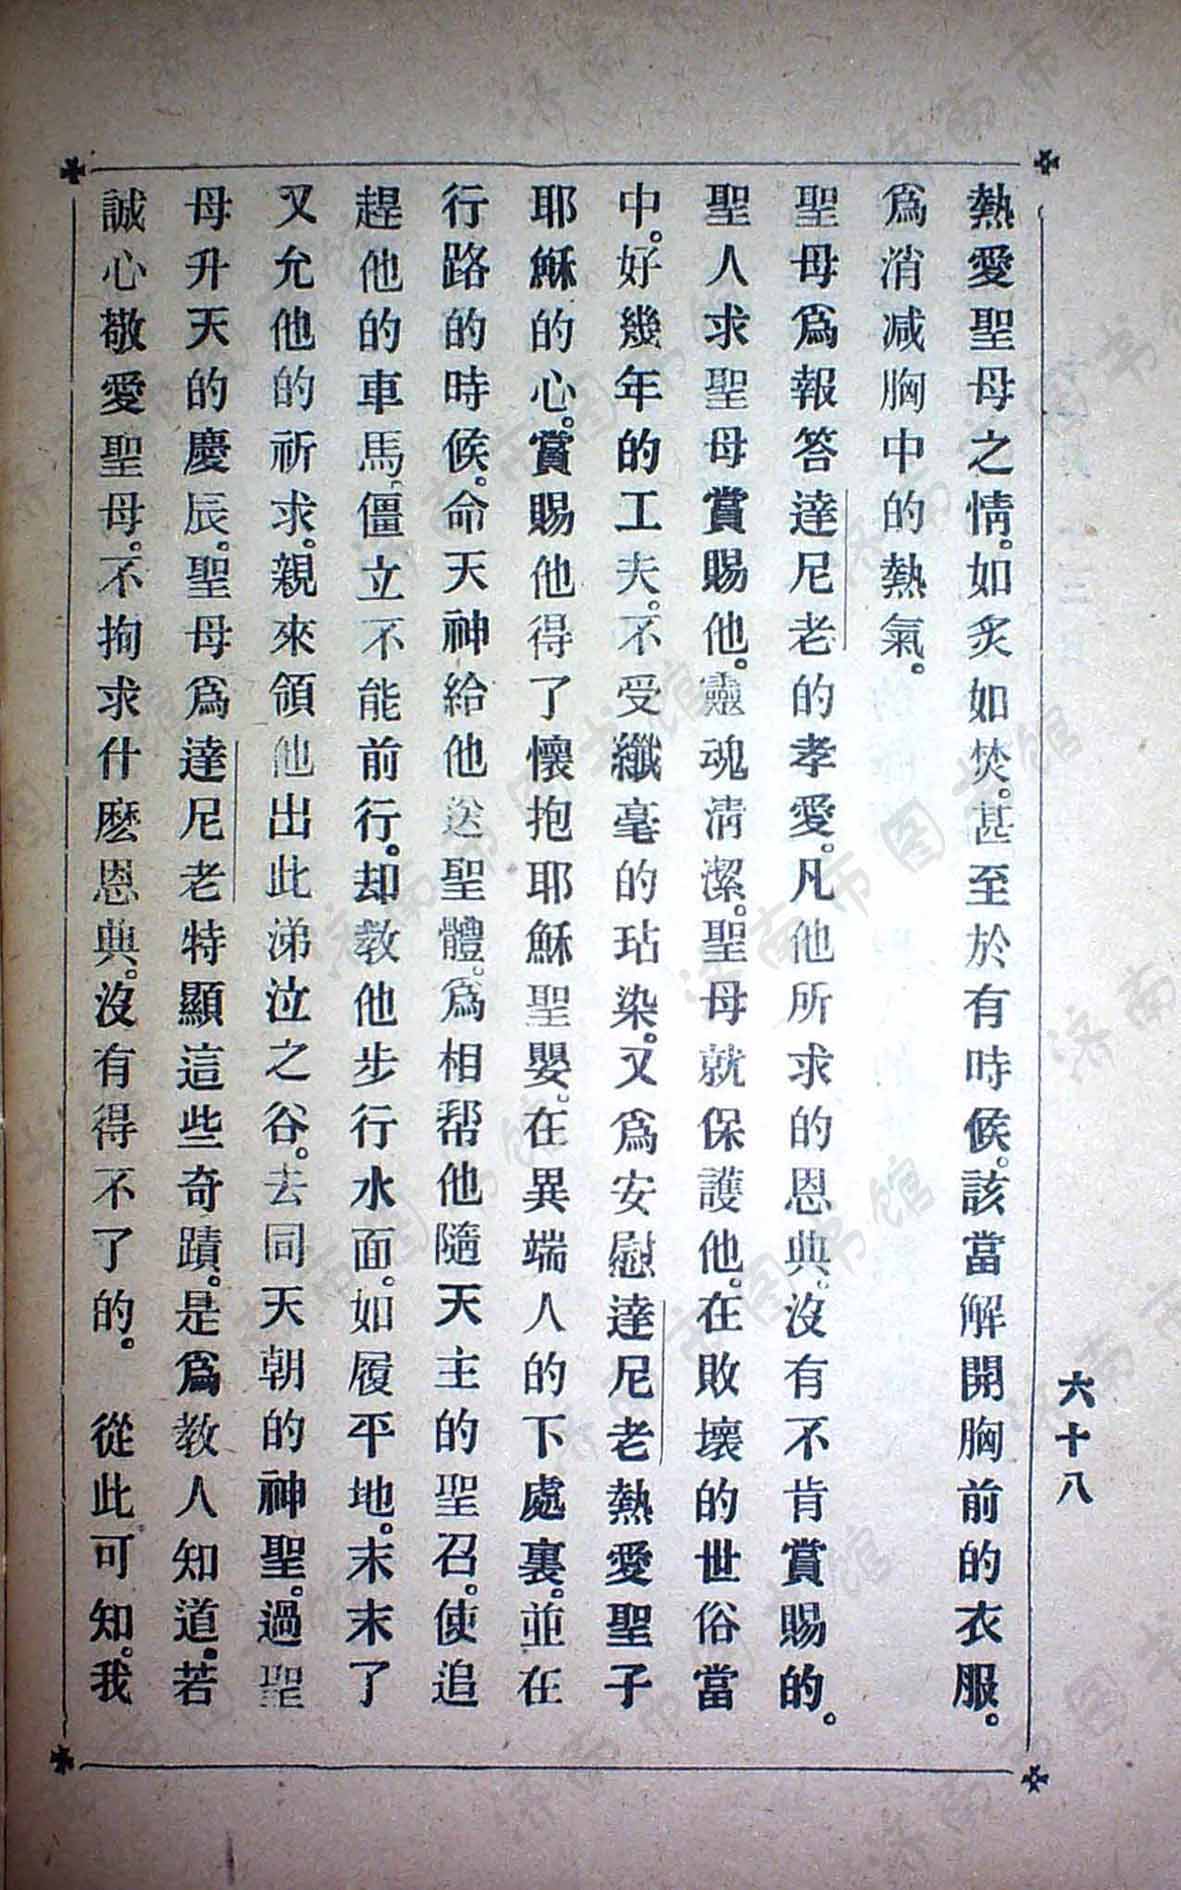 六十八
熱愛聖母之情。如炙如焚。甚至於有時候。該當解開胸前的衣服。
爲消减胸中的熱氣。
聖母爲報答達尼老的孝愛。凡他所求的恩典。沒有不肯賞賜的。
聖人求聖母賞賜他。靈魂清潔。聖母就保護他。在敗壞的世俗當
中。好幾年的工夫。不受纖毫的玷染。又爲安慰達尼老熱愛聖子
耶穌的心。賞賜他得了懷抱耶穌聖嬰。在異端人的下處裏。並在
行路的時候。命天神給他送聖體。爲相帮他隨天主的聖召。使追
趕他的車馬。僵立不能前行。却教他步行水面。如履平地。末末了
又允他的祈求。親來領他出此涕泣之谷。去同天朝的神聖。過聖
母升天的慶辰。聖母爲達尼老特顯這些奇蹟。是爲教人知道。若
誠心敬愛聖母。不拘求什麽恩典。沒有得不了的。 從此可知。我
济南市图书馆